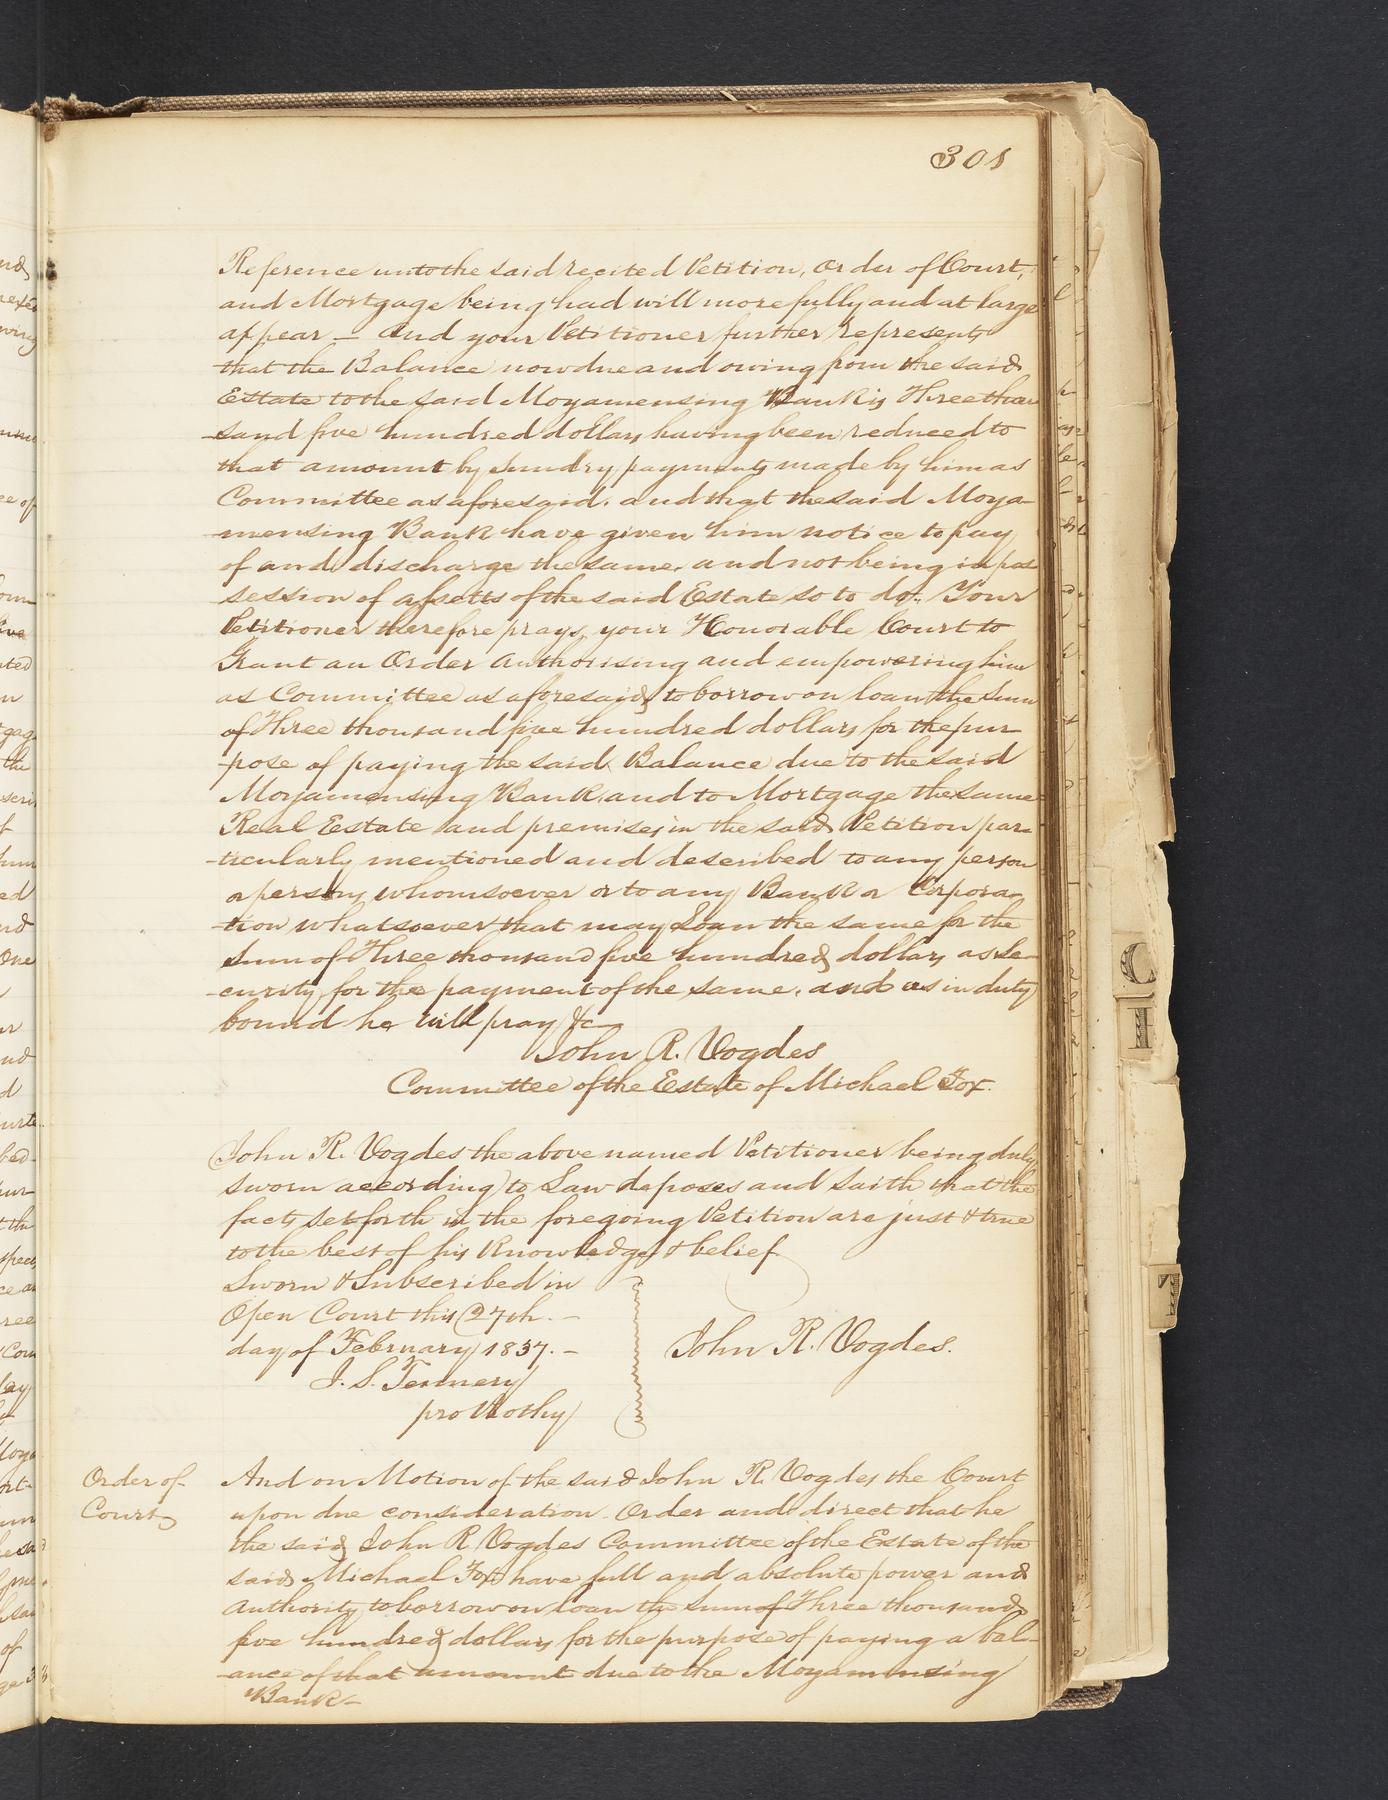 301
Reference unto the said recited Petition, Order of Court,
and Mortgage being had will more fully and at large
appear — And your Petitioner further represents
that the Balance now due and owing from the said
Estate to the said Moyamensing Bank is Three thou
sand five hundred dollars having been reduced to
that amount by sundry payments made by him as
Committee as aforesaid. and that the said Moya-
mensing Bank have given him notice to pay
of and discharge the same. and not being in pos
session of assetts of the said Estate so to do. Your
Petitioner therefore prays your Honorable Court to
Grant an Order Authorising and empowering him
as Committee as aforesaid to borrow on loan the sum
of Three thousand five hundred dollars for the pur
pose of paying the said Balance due to the said
Moyamensing Bank, and to Mortgage the same
Real Estate and premises in the said Petition par-
ticularly mentioned and described to any person
or persons whomsoever or to any Bank or Corpora-
tion whatsoever that may Loan the same for the
sum of Three thousand five hundred dollars as se-
curity for the payment of the same. and as in duty
bound he will pray &c
John R. Vogdes
Committee of the Estate of Michael Fox.
John R. Vogdes the above named Petitioner being duly
sworn according to Law deposes and saith that the
facts set forth in the foregoing Petition are just & true
to the best of his Knowledge & belief
Sworn & Subscribed in
Open Court this 27th. —
day of February 1837. —
J. S. Tennery
pro Prothy
John R. Vogdes.
Order of
Court
And on Motion of the said John R. Vogdes the Court
upon due consideration Order and direct that he
the said John R Vogdes Committee of the Estate of the
said Michael Fox have full and absolute power and
Authority to borrow on loan the sum of Three thousand
five hundred dollars for the purpose of paying a bal-
ance of that amount due to the Moyamensing
Bank —